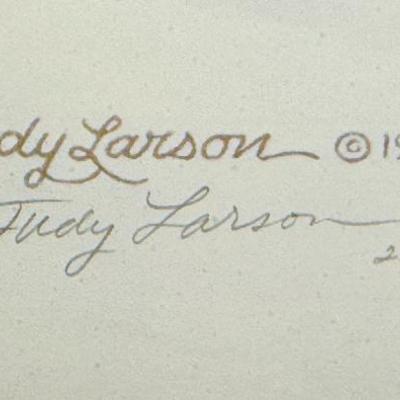 dy Larson © 19
Judy Larson
2